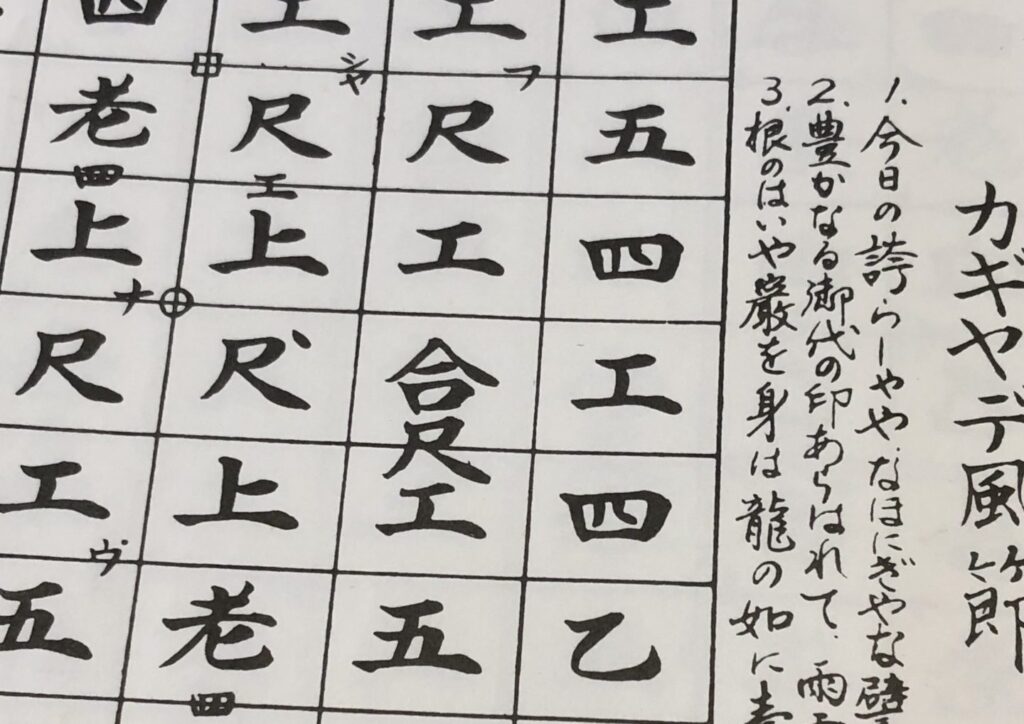 カギヤデ風節
1. 今日の誇らしややなほにぎやな譬
2. 豊かなる御代の印あらはれて、雨
3. 根のはいや巌を身は龍の如に
工五四工四乙
工フ尺工合尺工五
工シャ尺工上尺上老四
四老四上ナ尺工ヴ五